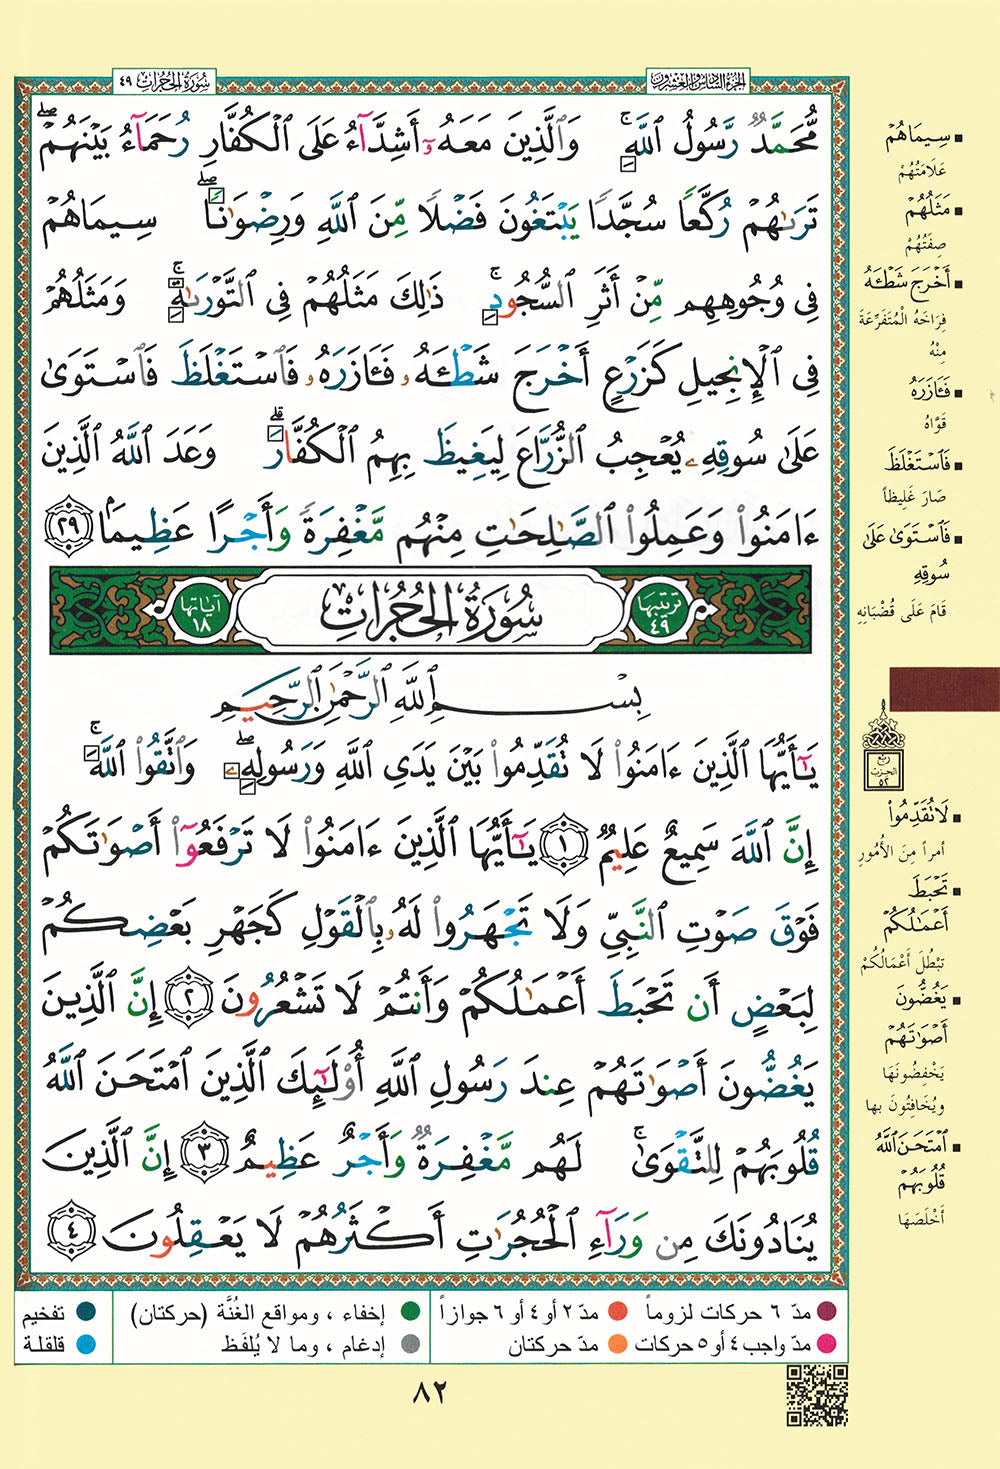 الجزء السادس والعشرون
سُورَةُ الحُجُرَاتِ ٤٩
مُّحَمَّدٌ رَّسُولُ ٱللَّهِۚ وَٱلَّذِينَ مَعَهُۥٓ أَشِدَّآءُ عَلَى ٱلۡكُفَّارِ رُحَمَآءُ بَيۡنَهُمۡۖ
تَرَىٰهُمۡ رُكَّعٗا سُجَّدٗا يَبۡتَغُونَ فَضۡلٗا مِّنَ ٱللَّهِ وَرِضۡوَٰنٗاۖ سِيمَاهُمۡ
فِي وُجُوهِهِم مِّنۡ أَثَرِ ٱلسُّجُودِۚ ذَٰلِكَ مَثَلُهُمۡ فِي ٱلتَّوۡرَىٰةِۚ وَمَثَلُهُمۡ
فِي ٱلۡإِنجِيلِ كَزَرۡعٍ أَخۡرَجَ شَطۡـَٔهُۥ فَـَٔازَرَهُۥ فَٱسۡتَغۡلَظَ فَٱسۡتَوَىٰ
عَلَىٰ سُوقِهِۦ يُعۡجِبُ ٱلزُّرَّاعَ لِيَغِيظَ بِهِمُ ٱلۡكُفَّارَۗ وَعَدَ ٱللَّهُ ٱلَّذِينَ
ءَامَنُواْ وَعَمِلُواْ ٱلصَّٰلِحَٰتِ مِنۡهُم مَّغۡفِرَةٗ وَأَجۡرًا عَظِيمَۢا ٢٩
ترتيبها ٤٩ سُورَةُ الحُجُرَاتِ آياتها ١٨
بِسۡمِ ٱللَّهِ ٱلرَّحۡمَٰنِ ٱلرَّحِيمِ
يَٰٓأَيُّهَا ٱلَّذِينَ ءَامَنُواْ لَا تُقَدِّمُواْ بَيۡنَ يَدَيِ ٱللَّهِ وَرَسُولِهِۦۖ وَٱتَّقُواْ ٱللَّهَۚ
إِنَّ ٱللَّهَ سَمِيعٌ عَلِيمٞ ١ يَٰٓأَيُّهَا ٱلَّذِينَ ءَامَنُواْ لَا تَرۡفَعُوٓاْ أَصۡوَٰتَكُمۡ
فَوۡقَ صَوۡتِ ٱلنَّبِيِّ وَلَا تَجۡهَرُواْ لَهُۥ بِٱلۡقَوۡلِ كَجَهۡرِ بَعۡضِكُمۡ
لِبَعۡضٍ أَن تَحۡبَطَ أَعۡمَٰلُكُمۡ وَأَنتُمۡ لَا تَشۡعُرُونَ ٢ إِنَّ ٱلَّذِينَ
يَغُضُّونَ أَصۡوَٰتَهُمۡ عِندَ رَسُولِ ٱللَّهِ أُوْلَٰٓئِكَ ٱلَّذِينَ ٱمۡتَحَنَ ٱللَّهُ
قُلُوبَهُمۡ لِلتَّقۡوَىٰۚ لَهُم مَّغۡفِرَةٞ وَأَجۡرٌ عَظِيمٌ ٣ إِنَّ ٱلَّذِينَ
يُنَادُونَكَ مِن وَرَآءِ ٱلۡحُجُرَٰتِ أَكۡثَرُهُمۡ لَا يَعۡقِلُونَ ٤
سِيمَاهُمۡ
عَلَامَتُهُمْ
مَثَلُهُمۡ
صِفَتُهُمْ
أَخۡرَجَ شَطۡـَٔهُ
فِرَاخَهُ الْمُتَفَرِّعَةَ
مِنْهُ
فَـَٔازَرَهُ
قَوَّاهُ
فَٱسۡتَغۡلَظَ
صَارَ غَلِيظاً
فَٱسۡتَوَىٰ عَلَىٰ
سُوقِهِ
قَامَ عَلَى قُضْبَانِهِ
ربع
الحزب
٥٢
لَا تُقَدِّمُواْ
أمراً مِنَ الأُمُورِ
تَحۡبَطَ
أَعۡمَٰلُكُمۡ
تَبْطُلَ أَعْمَالُكُمْ
يَغُضُّونَ
أَصۡوَٰتَهُمۡ
يَخْفِضُونَهَا
ويُخَافِتُونَ بها
ٱمۡتَحَنَ ٱللَّهُ
قُلُوبَهُمۡ
أَخْلَصَهَا
مدّ ٦ حركات لزوماً مدّ ٢ أو ٤ أو ٦ جوازاً إخفاء ، ومواقع الغُنَّة (حركتان) تفخيم
مدّ واجب ٤ أو ٥ حركات مدّ حركتان إدغام ، وما لا يُلفَظ قلقلة
٨٢